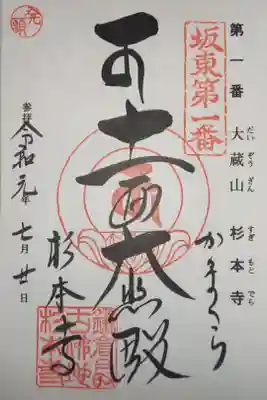 第一番 大蔵山 杉本寺
だいぞうざん すぎもとでら
坂東第一番
かまくら
十一面大悲殿
杉本寺
発願
参拝 令和元年 七月廿日